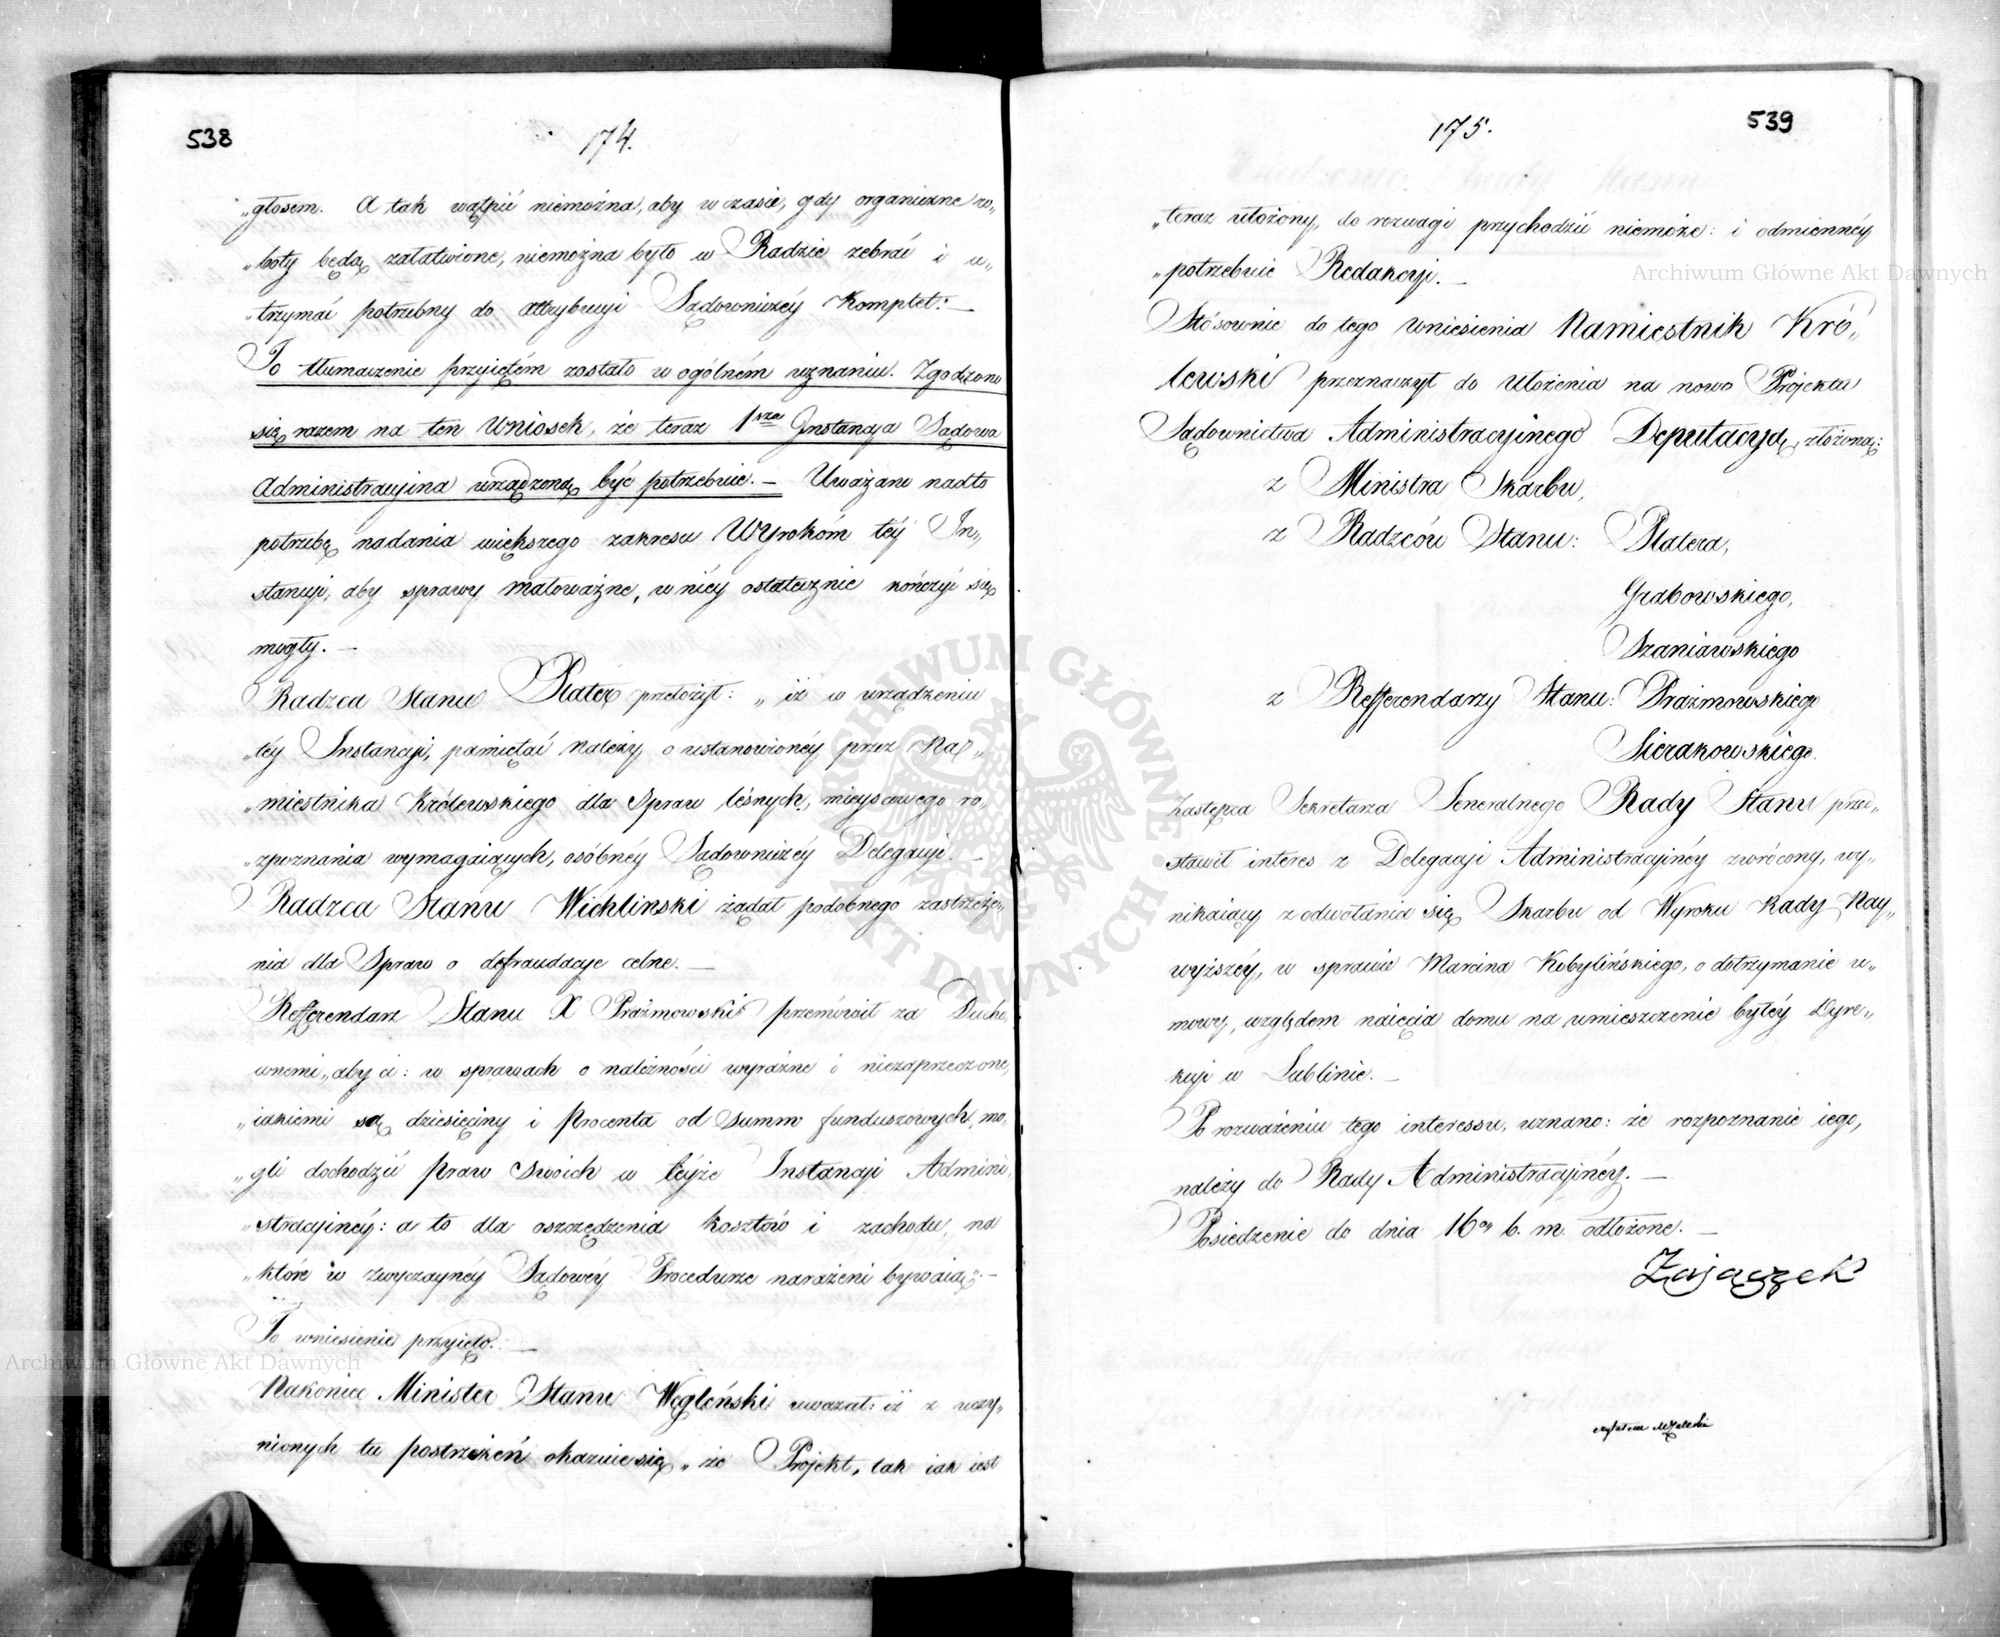 538
174.
„głosem. A tak wątpić niemożna, aby w czasie, gdy organiczne ro„
„boty będą załatwione, niemożna było w Radzie zebrać i u„
„trzymać potrzebny do attrybucyi Sądowniczéy Komplet: —
To tłumaczenie przyiętém zostało w ogólném uznaniu. Zgodzono
się razem na ten Wniosek, że teraz 1sza Instancya Sądowa
Administracyina urządzoną być potrzebuie. — Uważano nadto
potrzebę nadania większego zakresu Wyrokóm téy In„
stancyi, aby sprawy małoważne, w niéy ostatecznie kończyć się
mogły. —
Radzca Stanu Plater przełożył: „iż w urządzeniu
„téy Instancyi, pamiętać należy o ustanowionéy przez Na„
„miestnika Królewskiego dla Spraw leśnych, mieyscowego ro„
„zpoznania wymagaiących, osóbnéy Sądowniczéy Delegacyi. —
Radzca Stanu Wichliński żądał podobnego zastrzeże„
nia dla Spraw o defraudacye celne. —
Refferendarz Stanu X Prażmowski przemówił za Ducho„
wnemi, „aby ci: w sprawach o należności wyraźne i niezaprzeczone,
„iakiemi są dziesięciny i Procenta od Summ funduszowych, mo„
„gli dochodzić Praw Swoich w téyże Instancyi Admini„
„stracyinéy: a to dla oszczędzenia kosztów i zachodu, na
„które w zwyczaynéy Sądowéy Procedurze narażeni bywaią". —
To wniesienie przyięto. —
Nakoniec Minister Stanu Węgleński uważał: iż z uczy„
nionych tu postrzeżeń okazuie się „że Projekt, tak iak iest
539
175.
„teraz ułożony, do rozwagi przychodzić niemoże: i odmiennéy
„potrzebuie Redakcyi. —
Stósownie do tego Wniesienia Namiestnik Kró„
lewski przeznaczył do Ułożenia na nowo Projektu
Sądownictwa Administracyinego Deputacyą, złożoną:
z Ministra Skarbu,
z Radzców Stanu: Platera,
Grabowskiego,
Szaniawskiego
z Refferendarzy Stanu: Prażmowskiego
Sierakowskiego.
Zastępca Sekretarza Jeneralnego Rady Stanu przed„
stawił interes z Delegacyi Administracyinéy zwrócony, wy„
nikaiący z odwołania się Skarbu od Wyroku Rady Nay„
wyższéy, w sprawie Marcina Kobylińskiego, o dotrzymanie u„
mowy, względem naięcia domu na umieszczenie byłéy Dyre„
kcyi w Lublinie. —
Po rozważeniu tego interessu, uznano: że rozpoznanie iego,
należy do Rady Administracyinéy. —
Posiedzenie do dnia 16go b. m. odłożone. —
Zajączek
Archiwum Główne Akt Dawnych
Archiwum Główne Akt Dawnych
ARCHIWUM GŁÓWNE AKT DAWNYCH